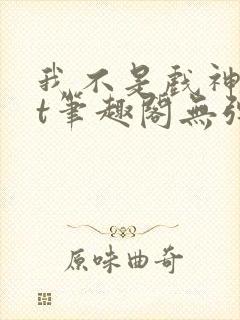 我不是戲神t
t筆趣閣無彈
原味曲奇